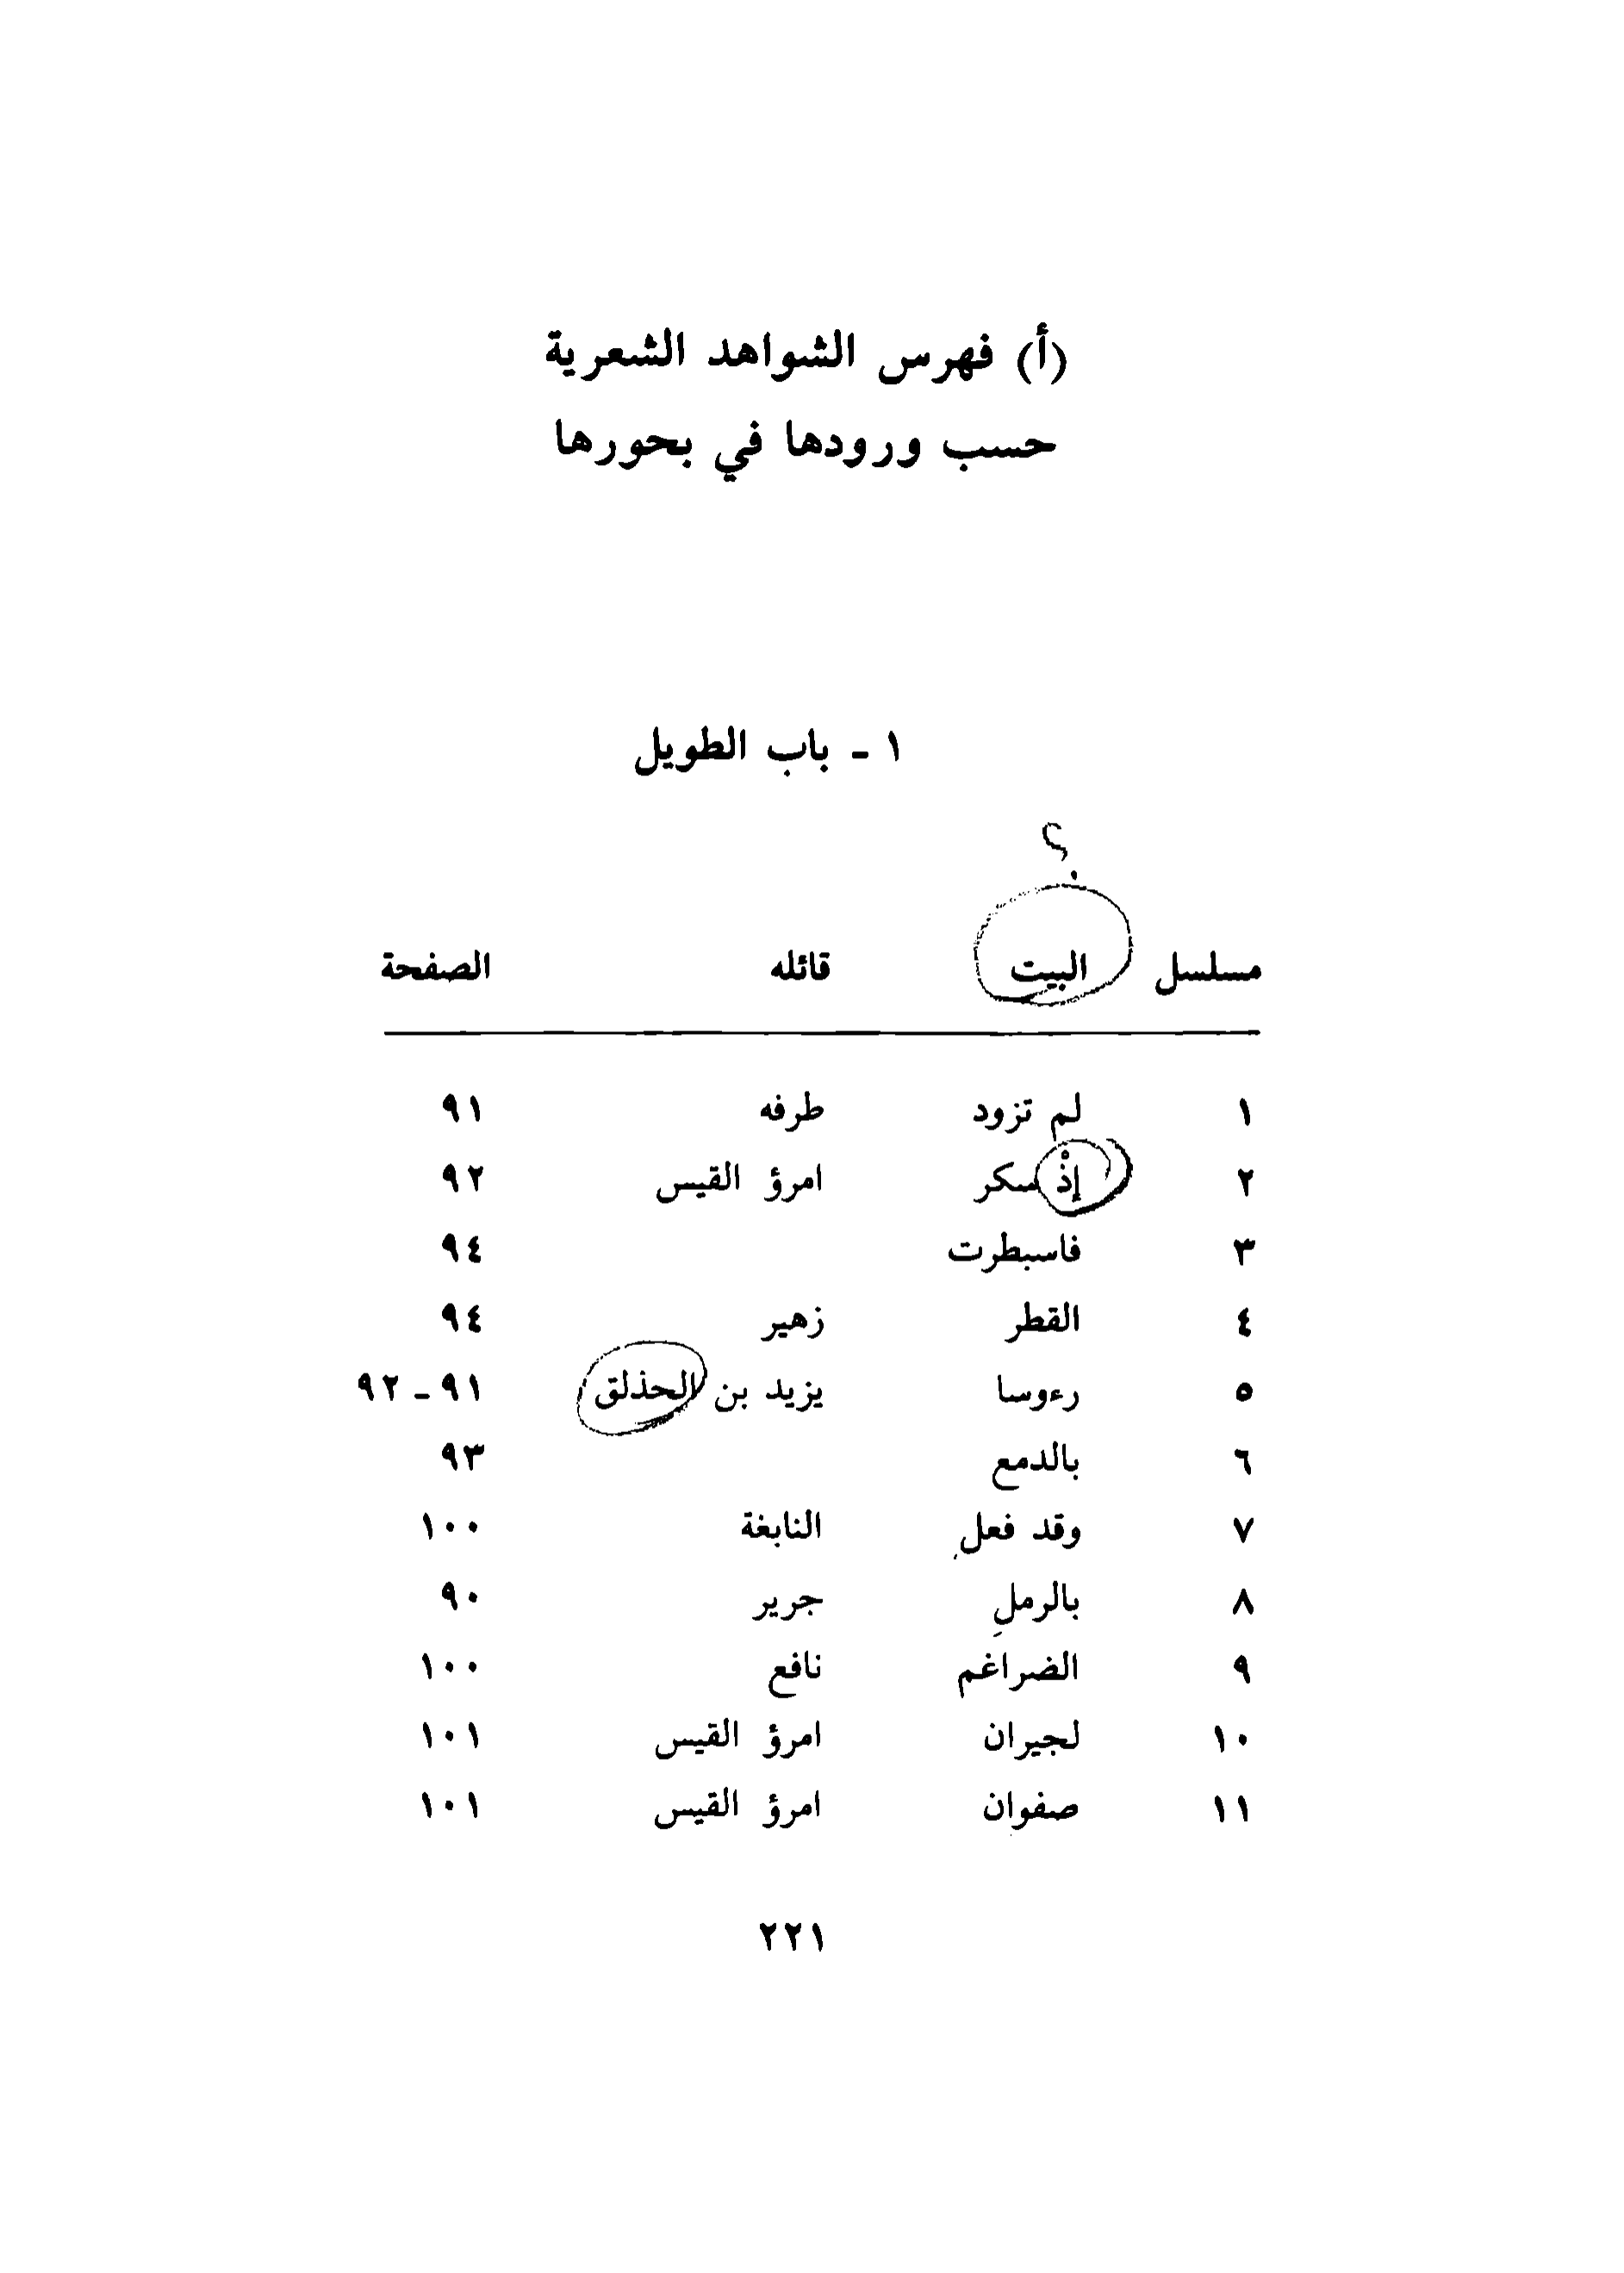 (أ) فهرس الشواهد الشعرية
حسب ورودها في بحورها
١ - باب الطويل
؟
مسلسل البيت قائله الصفحة
١ لم تزود طرفه ٩١
٢ إذْ سكر امرؤ القيس ٩٢
٣ فاسبطرت ٩٤
٤ القطر زهير ٩٤
٥ رءوسا يزيد بن الحذلق ٩١ - ٩٢
٦ بالدمع ٩٣
٧ وقد فعل النابغة ١٠٠
٨ بالرملِ جرير ٩٠
٩ الضراغم نافع ١٠٠
١٠ لجيران امرؤ القيس ١٠١
١١ صفوان امرؤ القيس ١٠١
٢٢١